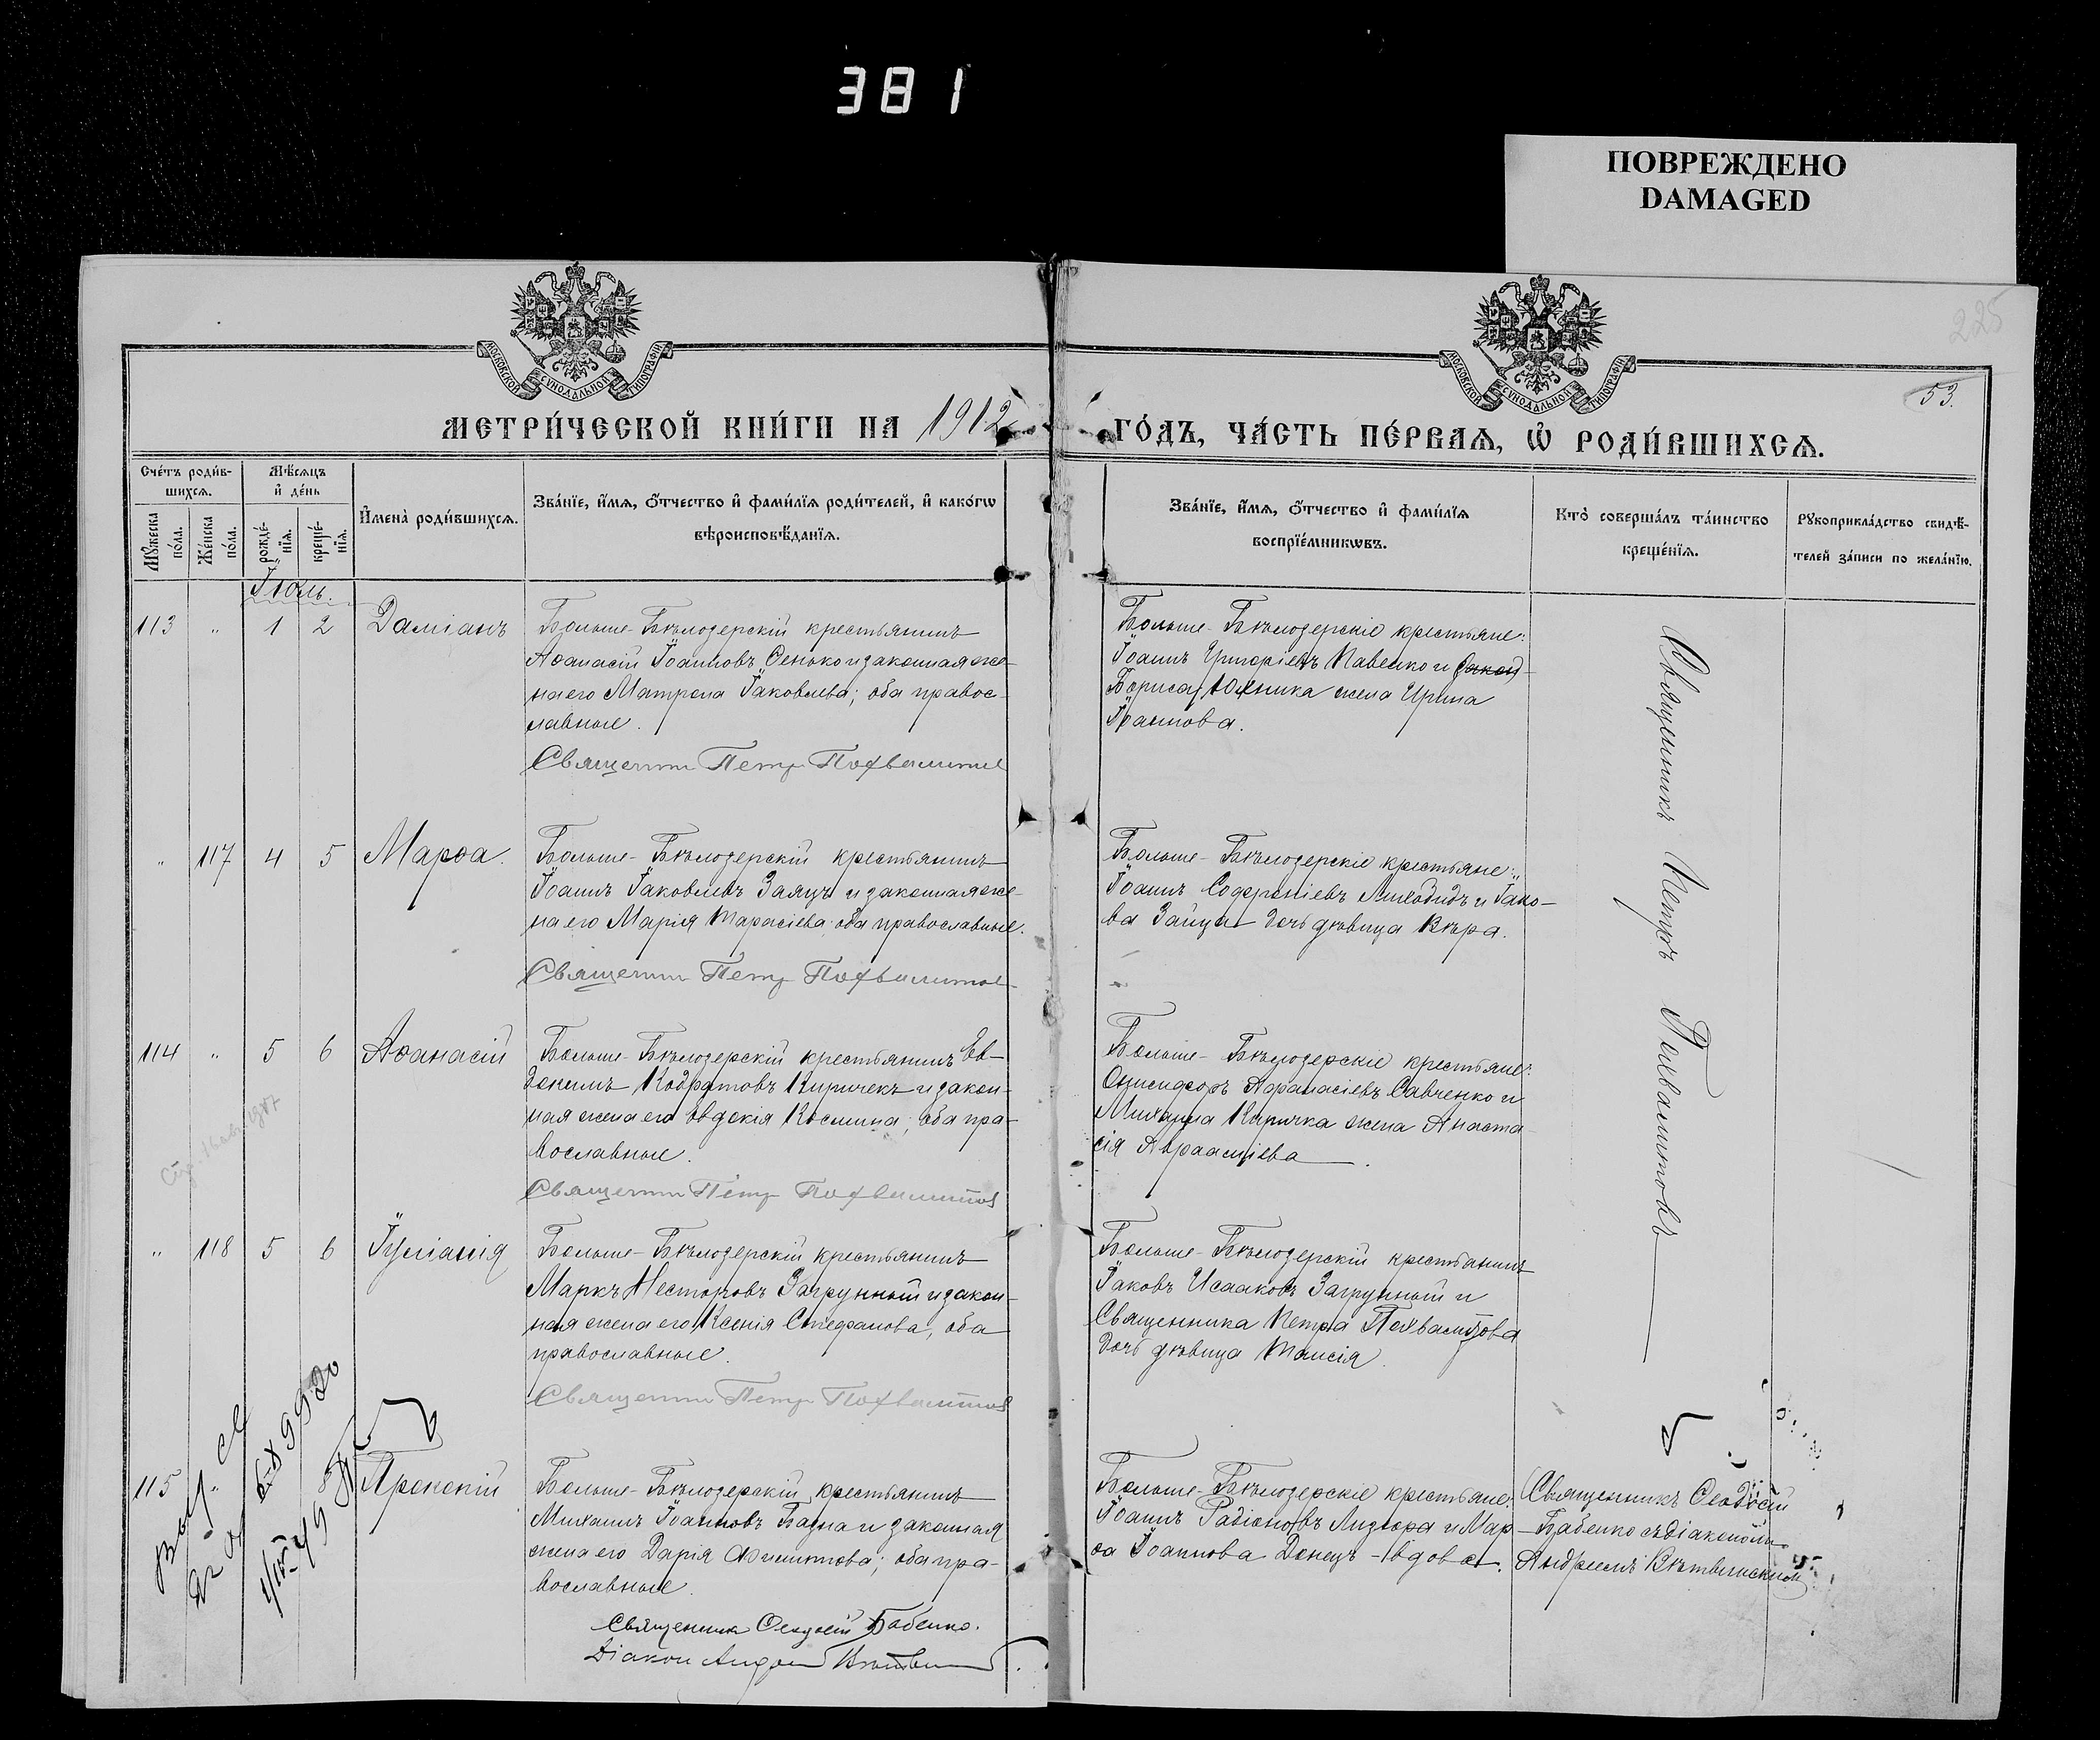 381
ПОВРЕЖДЕНО
DAMAGED
225
53.
МОСКОВСКОЙ СѴНОДАЛЬНОЙ ТИПОГРАФІИ
МОСКОВСКОЙ СѴНОДАЛЬНОЙ ТИПОГРАФІИ
МЕТРИ́ЧЕСКОЙ КНИ́ГИ НА 1912
ГО́ДЪ, ЧА́СТЬ ПЕ́РВАѦ, Ѡ҆ РОДИ́ВШИХСѦ.
Сче́тъ роди́в-
шихсѧ.
Мѣ́сѧцъ
и҆ де́нь
Мꙋ́жеска по́ла.
Же́нска по́ла.
рожде́-
нїѧ.
креще́-
нїѧ.
И҆мена̀ роди́вшихсѧ.
Зва́нїе, и҆́мѧ, ѻ҆́тчество и҆ фами́лїѧ роди́телей, и҆ како́гѡ
вѣроисповѣ́данїѧ.
Зва́нїе, и҆́мѧ, ѻ҆́тчество и҆ фами́лїѧ
воспрїе́мникѡвъ.
Кто̀ соверша́лъ та́инство
креще́нїѧ.
Рꙋкоприкла́дство свидѣ́-
телей за́писи по жела́нїю.
Іюль.
113 " 1 2 Даміанъ
Больше-Бѣлозерскій крестьянинъ
Аѳанасій Іоанновъ Сенько и законная же-
на его Матрона Іаковлева; оба правос-
лавные.
Священник Петр Похвалитов
Больше-Бѣлозерскіе крестьяне:
Іоаннъ Григоріевъ Павенко и
Бориса Юхника жена Ирина
Іоаннова.
Священникъ Петръ Похвалитовъ
" 117 4 5 Марѳа.
Больше-Бѣлозерскій крестьянинъ
Іоаннъ Іаковлевъ Заяцъ и законная же-
на его Марія Тарасіева; оба православные.
Священник Петр Похвалитов
Больше-Бѣлозерскіе крестьяне:
Іоаннъ и Іако-
ва Зайца дочь дѣвица Вѣра.
114 " 5 6 Аѳанасій
Больше-Бѣлозерскій крестьянинъ Ев-
докимъ Кодратовъ Киричекъ и закон-
ная жена его Евдокія Космина; оба пра-
вославные.
Священник Петр Похвалитов
Больше-Бѣлозерскіе крестьяне:
Онисифоръ Аѳанасіевъ Савченко и
Михаила Киричка жена Анаста-
сія Авраамiева.
" 118 5 6 Іуліанія
Больше-Бѣлозерскій крестьянинъ
Маркъ Несторовъ Загрунный и закон-
ная жена его Ксенія Стефанова; оба
православные.
Священник Петр Похвалитов
Больше-Бѣлозерскій крестьянинъ
Іаковъ Исааковъ Загрунный и
Священника Петра Похвалитова
дочь дѣвица Таисія.
115 " 5 Ярскскій
Больше-Бѣлозерскій крестьянинъ
Михаилъ Іоанновъ и законная
жена его Дарія Филиппова; оба пра-
вославные.
Священник Ѳеодосій Бабенко.
Діакон Андрей
Больше-Бѣлозерскіе крестьяне:
Іоаннъ Радіоновъ и Мар-
ѳа Іоаннова Донецъ - вдова.
Священникъ Ѳеодосій
Бабенко съ діакономъ
Андреемъ